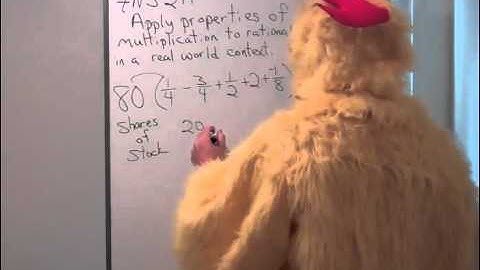 7NS2A
Apply properties of
multiplication to rational
in a real world context.
80 (1/4 - 3/4 + 1/2 + 2 + -1/8
shares
of
stock
20